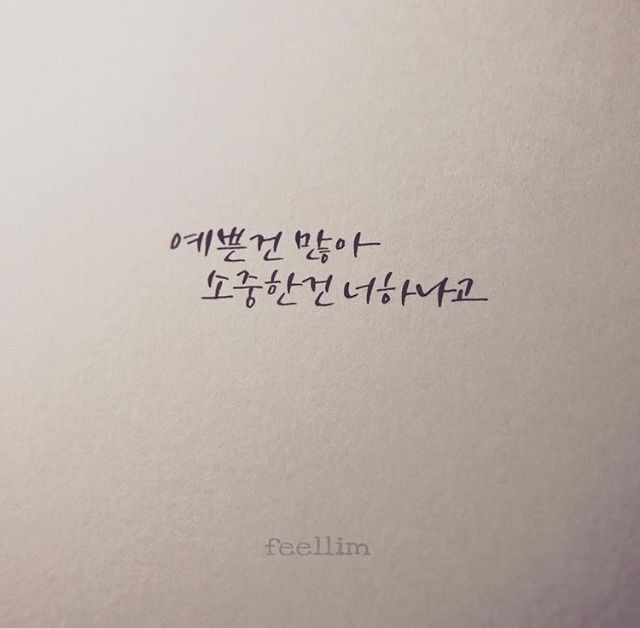 예쁜건 많아
소중한건 너하나고
feellim